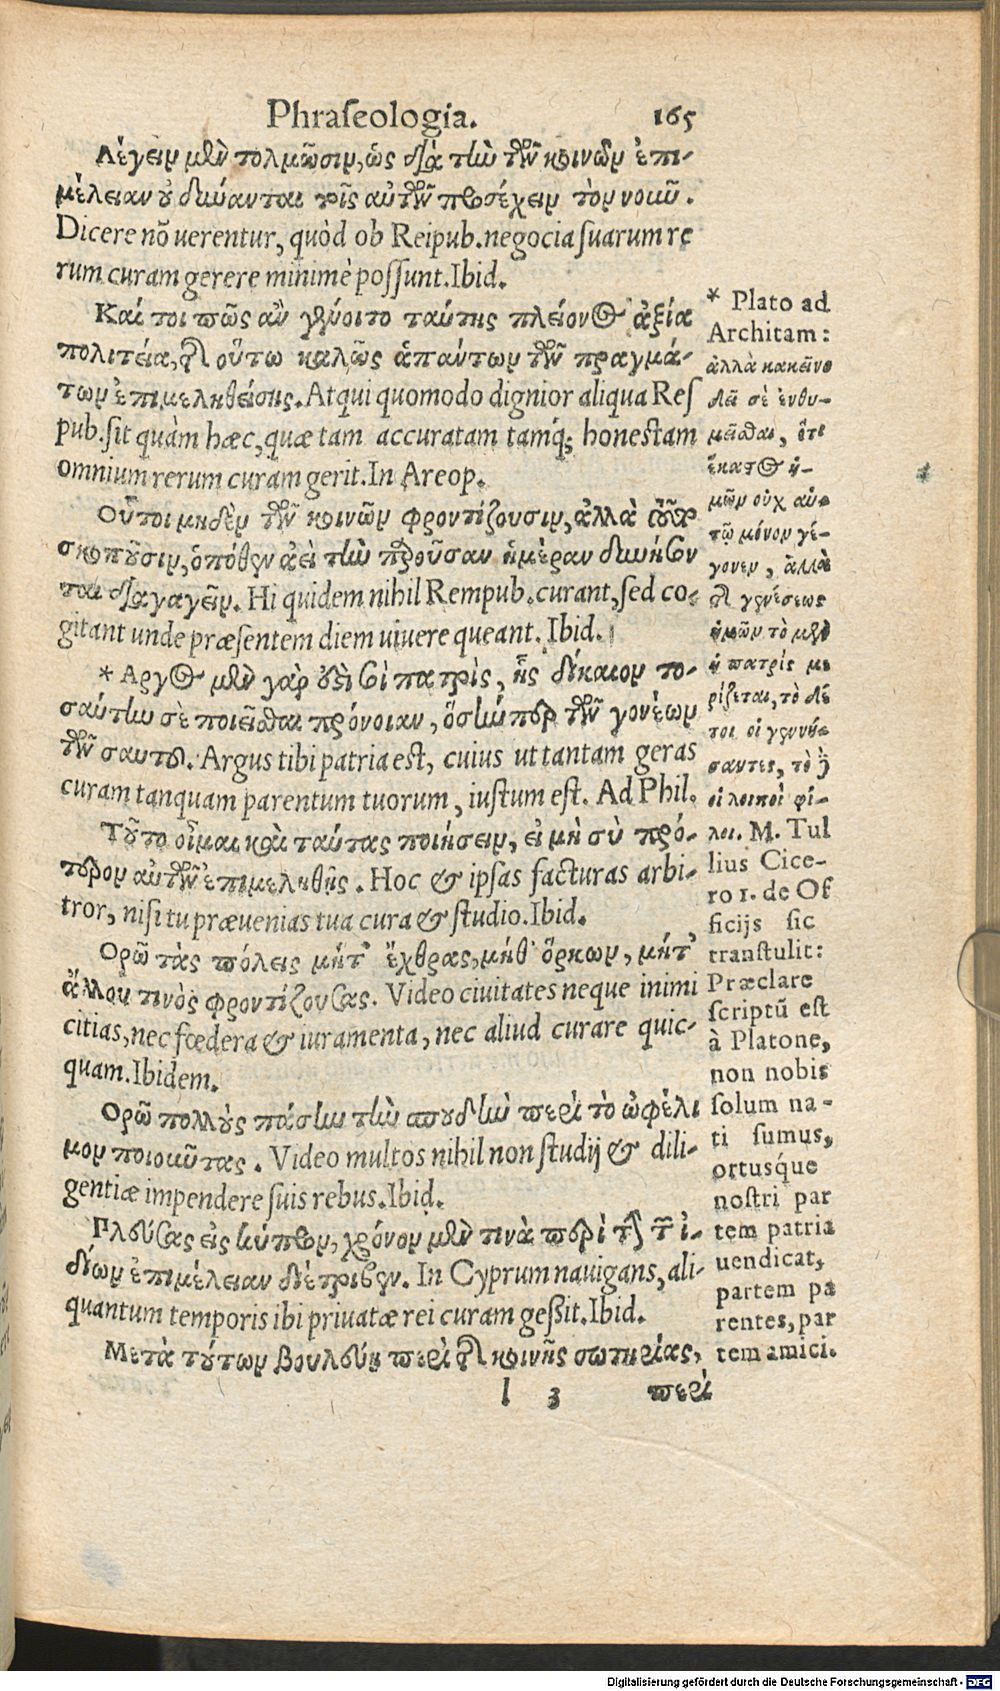 Phraſeologia. 165
Λέγειν μὲν τολμῶσιν, ὡς διὰ τὴν τῶν κοινῶν ἐπι-
μέλειαν οὐ δύνανται τοῖς αὑτῶν προσέχειν τὸν νοῦν.
Dicere nõ uerentur, quòd ob Reipub. negocia ſuarum re
rum curam gerere minimè poſſunt. Ibid.
Καί τοι πῶς ἂν γένοιτο ταύτης πλείονος ἀξία
πολιτεία, τῆς οὕτω καλῶς ἁπάντων τῶν πραγμά-
των ἐπιμεληθείσης. Atqui quomodo dignior aliqua Reſ
pub. ſit quàm hæc, quæ tam accuratam tamq́; honestam
omnium rerum curam gerit. In Areop.
Οὗτοι μηδὲν τῶν κοινῶν φροντίζουσιν, ἀλλὰ
σκοποῦσιν, ὁπόθεν ἀεὶ τὴν παροῦσαν ἡμέραν δυνήσον
ται διαγαγεῖν. Hi quidem nihil Rempub. curant, ſed co-
gitant unde præſentem diem uiuere queant. Ibid.
* Αργος μὲν γάρ ἐστί σοι πατρὶς, ἧς δίκαιον το-
σαύτην σὲ ποιεῖσθαι πρόνοιαν, ὅσην περ τῶν γονέων
τῶν σαυτοῦ. Argus tibi patria est, cuius ut tantam geras
curam tanquam parentum tuorum, iustum est. Ad Phil.
Τοῦτο οἶμαι καὶ ταύτας ποιήσειν, εἰ μὴ σὺ πρό-
τερον αὐτῶν ἐπιμεληθῇς. Hoc & ipſas facturas arbi-
tror, niſi tu præuenias tua cura & studio. Ibid.
Ορῶ τὰς πόλεις μήτ' ἔχθρας, μήθ' ὅρκων, μήτ'
ἄλλου τινὸς φροντίζούσας. Video ciuitates neque inimi
citias, nec fœdera & iuramenta, nec aliud curare quic-
quam. Ibidem.
Ορῶ πολλοὺς πάσην τὴν σπουδὴν περὶ τὸ ὠφέλι
μον ποιουῦτας. Video multos nihil non studij & dili-
gentiæ impendere ſuis rebus. Ibid.
Πλεύσας εἰς κύπρον, χρόνον μὲν τινὰ περὶ τὴν τῶν ἰ-
δίων ἐπιμέλειαν διέτριβεν. In Cyprum nauigans, ali-
quantum temporis ibi priuatæ rei curam geßit. Ibid.
Μετὰ τούτων βουλεύῃ περὶ τῆς κοινῆς σωτηρίας,
l 3 περὶ
* Plato ad
Architam:
ἀλλὰ κακεῖνο
δεῖ σὲ ἐνθυ-
μεῖσθαι, ὅτι
ἕκαστος ἡ-
μῶν οὐχ αὑ-
τῷ μόνον γέ-
γονεν, ἀλλὰ
τῆς γενέσεως
ἡμῶν τὸ μὲν
ἡ πατρὶς με
ρίζεται, τὸ δέ
τοι οἱ γεννή-
σαντες, τὸ δὲ
οἱ λοιποὶ φί-
λοι. M. Tul
lius Cice-
ro 1. de Of
ficijs ſic
tranſtulit:
Præclare
ſcriptũ eſt
à Platone,
non nobis
ſolum na-
ti ſumus,
ortusq́ue
noſtri par
tem patria
uendicat,
partem pa
rentes, par
tem amici.
Digitalisierung gefördert durch die Deutsche Forschungsgemeinschaft - DFG